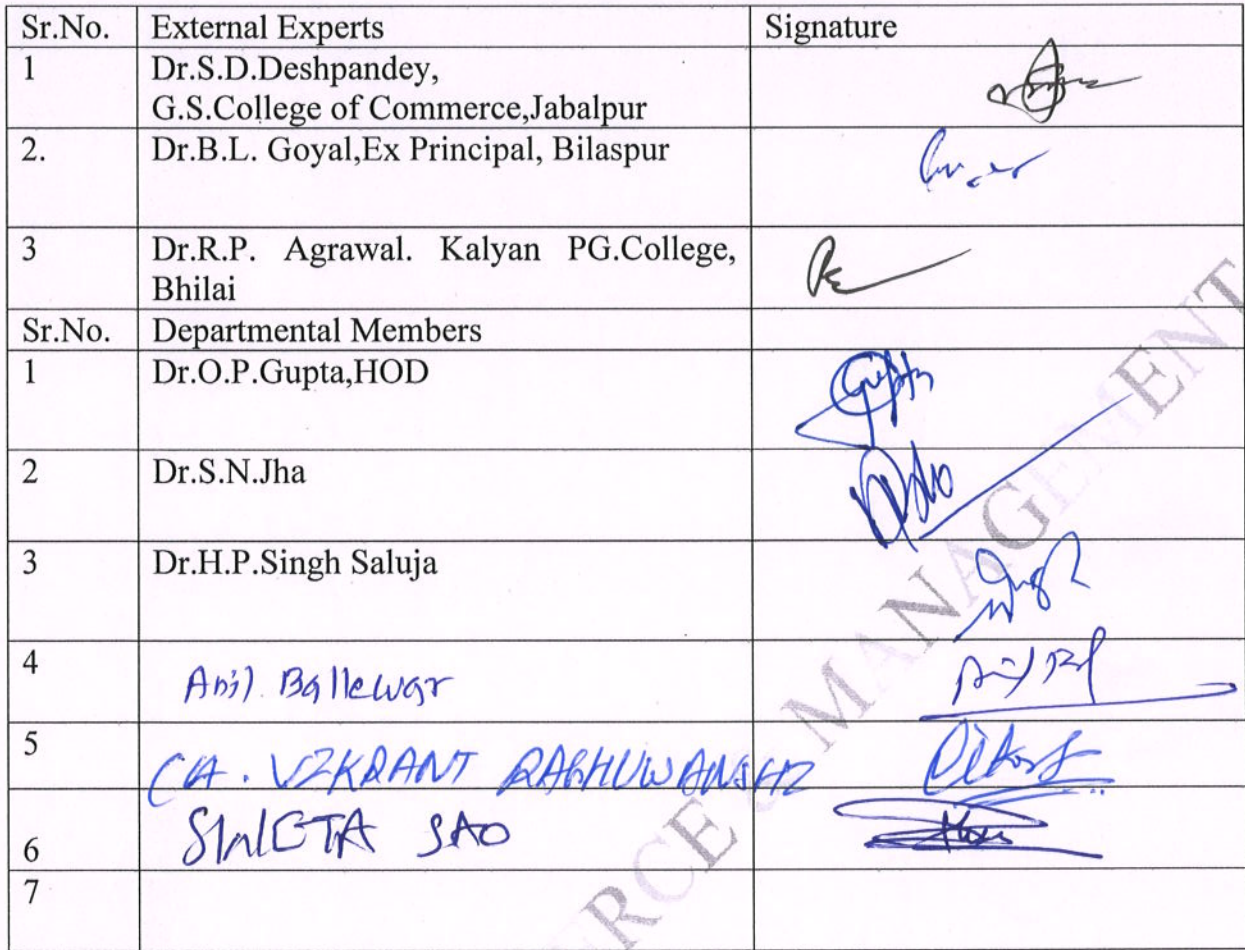 Sr.No. External Experts Signature
1 Dr.S.D.Deshpandey,
G.S.College of Commerce,Jabalpur
2. Dr.B.L. Goyal,Ex Principal, Bilaspur
3 Dr.R.P. Agrawal. Kalyan PG.College,
Bhilai
Sr.No. Departmental Members
1 Dr.O.P.Gupta,HOD Gupta
2 Dr.S.N.Jha
3 Dr.H.P.Singh Saluja
4 Anil Ballewar
5 CA. VIKRANT RAGHUWANSHI
6 SAO
7
MANAGEMENT